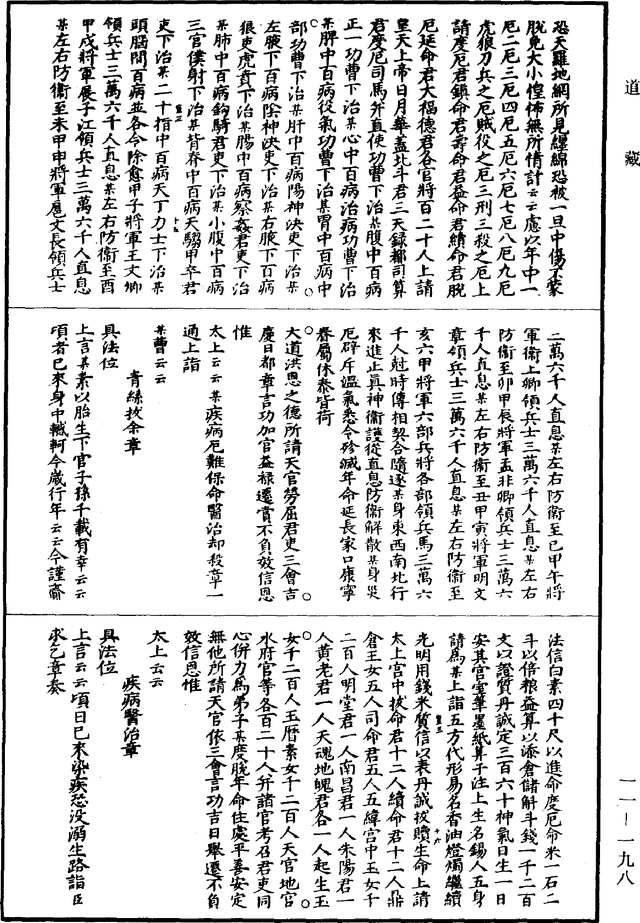 道藏
恐天羅地網所見纏綿恐被一旦中傷不蒙
脫免大小惶怖無所情計云云慮以年中一
厄二厄三厄四厄五厄六厄七厄八厄九厄
虎狼刀兵之厄賊役之厄三刑三殺之厄上
請度厄君鎮命君壽命君益命君續命君脫
厄延命君大福德君各官將百二十人上請
皇天上帝日月華蓋北斗君三天錄都司算
君度厄司馬并直使功曹下治某腹中百病
正一功曹下治某心中百病治病功曹下治
某脾中百病從氣功曹下治某胃中百病中
部功曹下治某肝中百病陽神決吏下治某
左腋下百病陰神決吏下治某右腋下百病
狼吏虎賁下治某腸中百病察姦君吏下治
某肺中百病鉤騎君吏下治某小腹中百病
三官僕射下治某背脊中百病天騶甲卒君
吏下治某二十指中百病天丁力士下治某
頭腦間百病並各令除愈甲子將軍王文卿
領兵士三萬六千人直息某左右防衞至酉
甲戌將軍展子江領兵士三萬六千人直息
某左右防衞至未甲申將軍扈文長領兵士
二萬六千人直息某左右防衞至巳甲午將
軍衞上卿領兵士三萬六千人直息某左右
防衞至卯甲辰將軍孟非卿領兵士三萬六
千人直息某左右防衞至丑甲寅將軍明文
章領兵士三萬六千人直息某左右防衞至
亥六甲將軍六部兵將各部領兵馬三萬六
千人尅時傳相契合隨逐某身東西南北行
來進止真神衞護從直息防衞解散某身災
厄辟斥溫氣悉令殄滅年命延長家口康寧
眷屬休泰皆荷
大道洪恩之德所請天官勞屈君吏三會吉
慶日都章言功加官益祿遷賞不負效信恩
惟
太上云云某疾病厄難保命醫治却殺章一
通上詣
某曹云云
青絲拔余章
具法位
上言某素以胎生下官子孫千載有幸云云
頃者已來身中轗軻今歲行年云云今謹齎
法信白素四十尺以進命度厄命米一石二
斗以倍粮益算以添倉儲斛斗錢一千二百
文以證質丹誠定三百六十神氣日生一日
安其宮室筆墨紙算子注上生名錫人五身
請為某上詣五方代形易名香油燈燭繼續
光明用錢米質信以表丹誠拔贖生命上請
太上宮中拔命君十二人續命君十二人鼎
倉王女五人司命君五人五緯宮中玉女千
二百人明堂君一人南昌君一人朱陽君一
人黃老君一人天魂地魄君各一人起生玉
女千二百人玉曆素女千二百人天官地官
水府官等各百二十人并諸官考召君吏同
心併力為弟子某度脫年命住處平善安定
無他所請天官依三會言功吉日舉遷不負
效信恩惟
太上云云
疾病醫治章
具法位
上言云云頃日已來染疾恐没溺生路詣臣
求乞章奏
一一—一九八